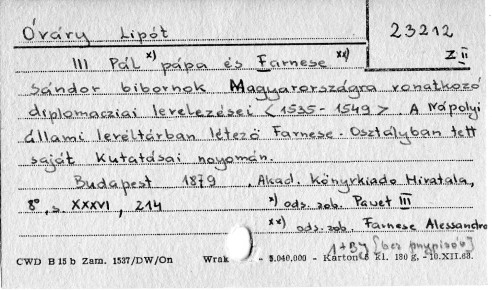 Óváry Lipót
23212
Z II
III Pál x) pápa és Farnese xx)
Sándor bibornok Magyarországra vonatkozó
diplomacziai levelezései <1535-1549> A Nápolyi
állami levéltárban létező Farnese-Osztályban tett
saját kutatásai nyomán.
Budapest 1879, Akad. Könyvkiadó Hivatala,
8°, s XXXVI, 214
x) ods. zob. Paweł III
xx) ods. zob. Farnese Alessandro
CWD B 15 b Zam. 1537/DW/On Wrak - 5.040.000 - Karton kl. 180 g. - 10.XII.68.